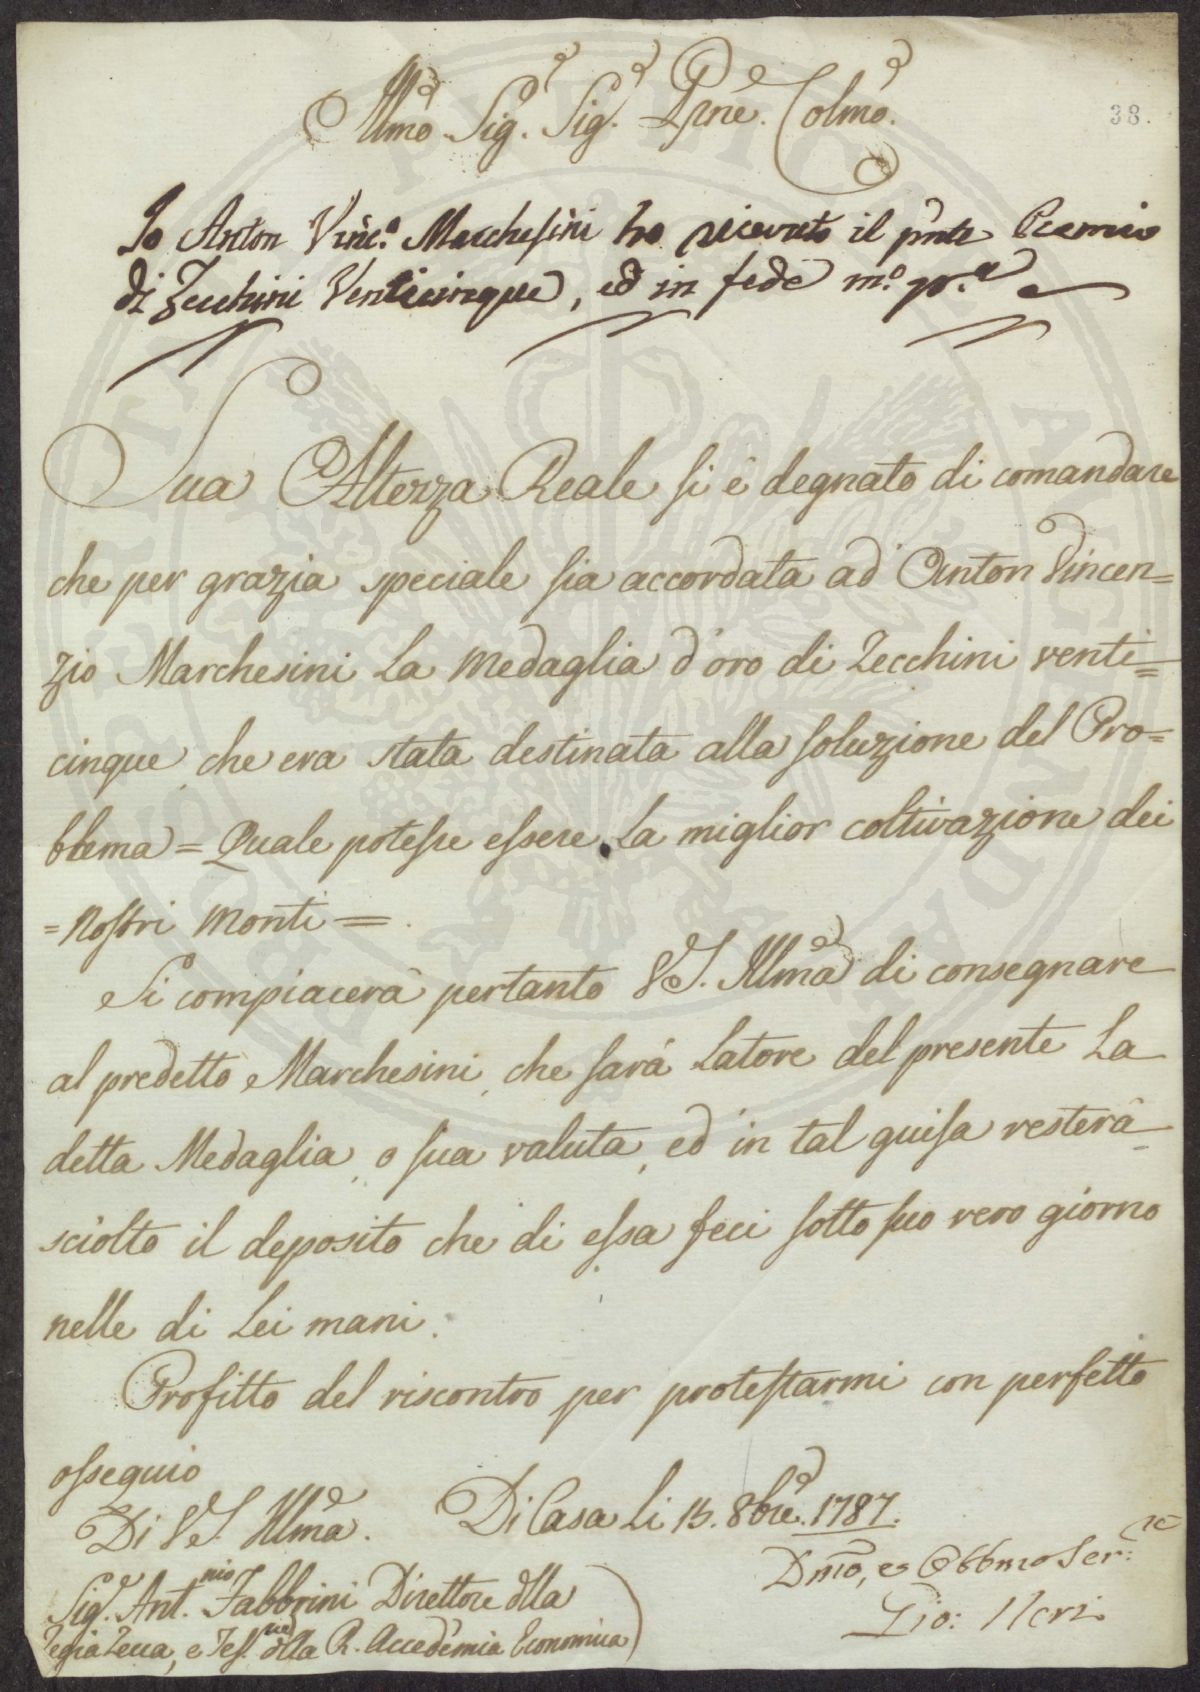 Illmo Sig.r Sig.r Prñe. Colmo.
38.
Io Anton Vinc.o Marchesini ho ricevuto il pnte Premio
di Zecchini Venticinque, ed in fede m.o pr.a
Sua Altezza Reale si è degnato di comandare
che per grazia speciale sia accordata ad Anton Vincen=
zio Marchesini la medaglia d'oro di Zecchini venti=
cinque, che era stata destinata alla soluzione del Pro=
blema = Quale potesse essere la miglior coltivazione dei
= nostri monti =.
Si compiacerà pertanto VS. Illma di consegnare
al predetto Marchesini, che sarà latore del presente la
detta Medaglia, o sua valuta, ed in tal guisa resterà
sciolto il deposito che di essa feci sotto suo vero giorno
nelle di Lei mani.
Profitto del riscontro per protestarmi con perfetto
ossequio
Di VS. Illma.
Di Casa li 15. 8bre. 1787.
Dmo, es Obbmo Ser.re
Gio: Neri
Sig.r Ant.nio Fabbrini Direttore dlla
Regia Zecca, e Tes.re dlla R. Accademia Economica